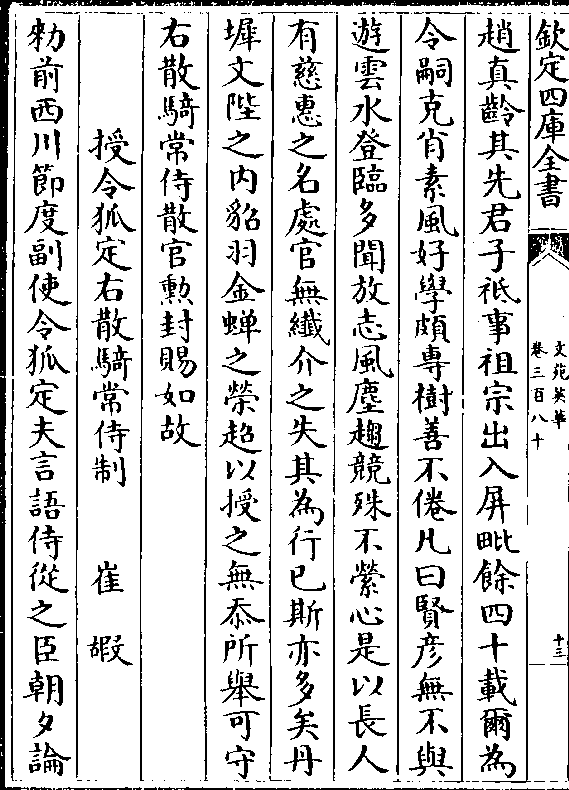 欽定四庫全書
文苑英華
卷三百八十
十三
趙真齡其先君子祗事祖宗出入屏毗餘四十載爾為
令嗣克肖素風好學頗專樹善不倦凡曰賢彦無不與
遊雲水登臨多聞放志風塵趨競殊不縈心是以長人
有慈惠之名處官無纖介之失其為行已斯亦多矣丹
墀文陛之内貂羽金蟬之榮超以授之無忝所舉可守
右散騎常侍散官勲封賜如故
授令狐定右散騎常侍制 崔嘏
勅前西川節度副使令狐定夫言語侍從之臣朝夕論